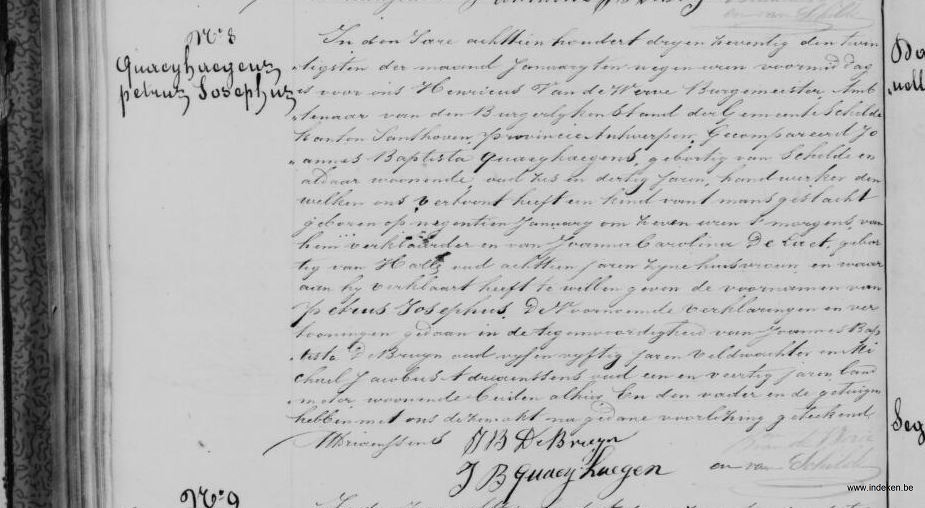 N.º 8
Quaeyhaegens
petrus Josephus
In den Jare achttien hondert dryen zeventig den twin
tigsten der maand January ten negen uren voormiddag
is voor ons Henricus Van de Werve Burgemeister Amb
tenaar van den Burgerlyken stand der Gemeente Schilde
Kanton Santhoven, provincie Antwerpen, Gecompareerd Jo
annes Baptista quaeyhaegens, geboortig van Schilde en
aldaar woonende, oud zes en dertig Jaren, handwerker den
welken ons vertoont heeft een kind vant mansgeslacht
geboren op negentien January om zeven uren s'morgens, van
hem verklaarder en van Joanna Carolina De Laet, geboor
tig van Halle oud achttien jaren zyne huisvrouw, en waar
aan hy verklaart heeft te willen geven de voornamen van
Petrus Josephus. De Voornoemde verklaringen en ver
tooningen gedaan in de tegenwoordigheid van Joannes Bap
tista De Bruyn oud vyf en vyftig jaren veldwachter en Mi
chael Jacobus Adriaenssens oud een en veertig jaren
woonende beiden alhier. En den vader en de getuigen
hebben met ons deze akt na gedane voorlezing geteekend
Adriaenssens J B De Bruyn
J B quaeyhaegen
en van Schilde
N.º 9
www.indeken.be